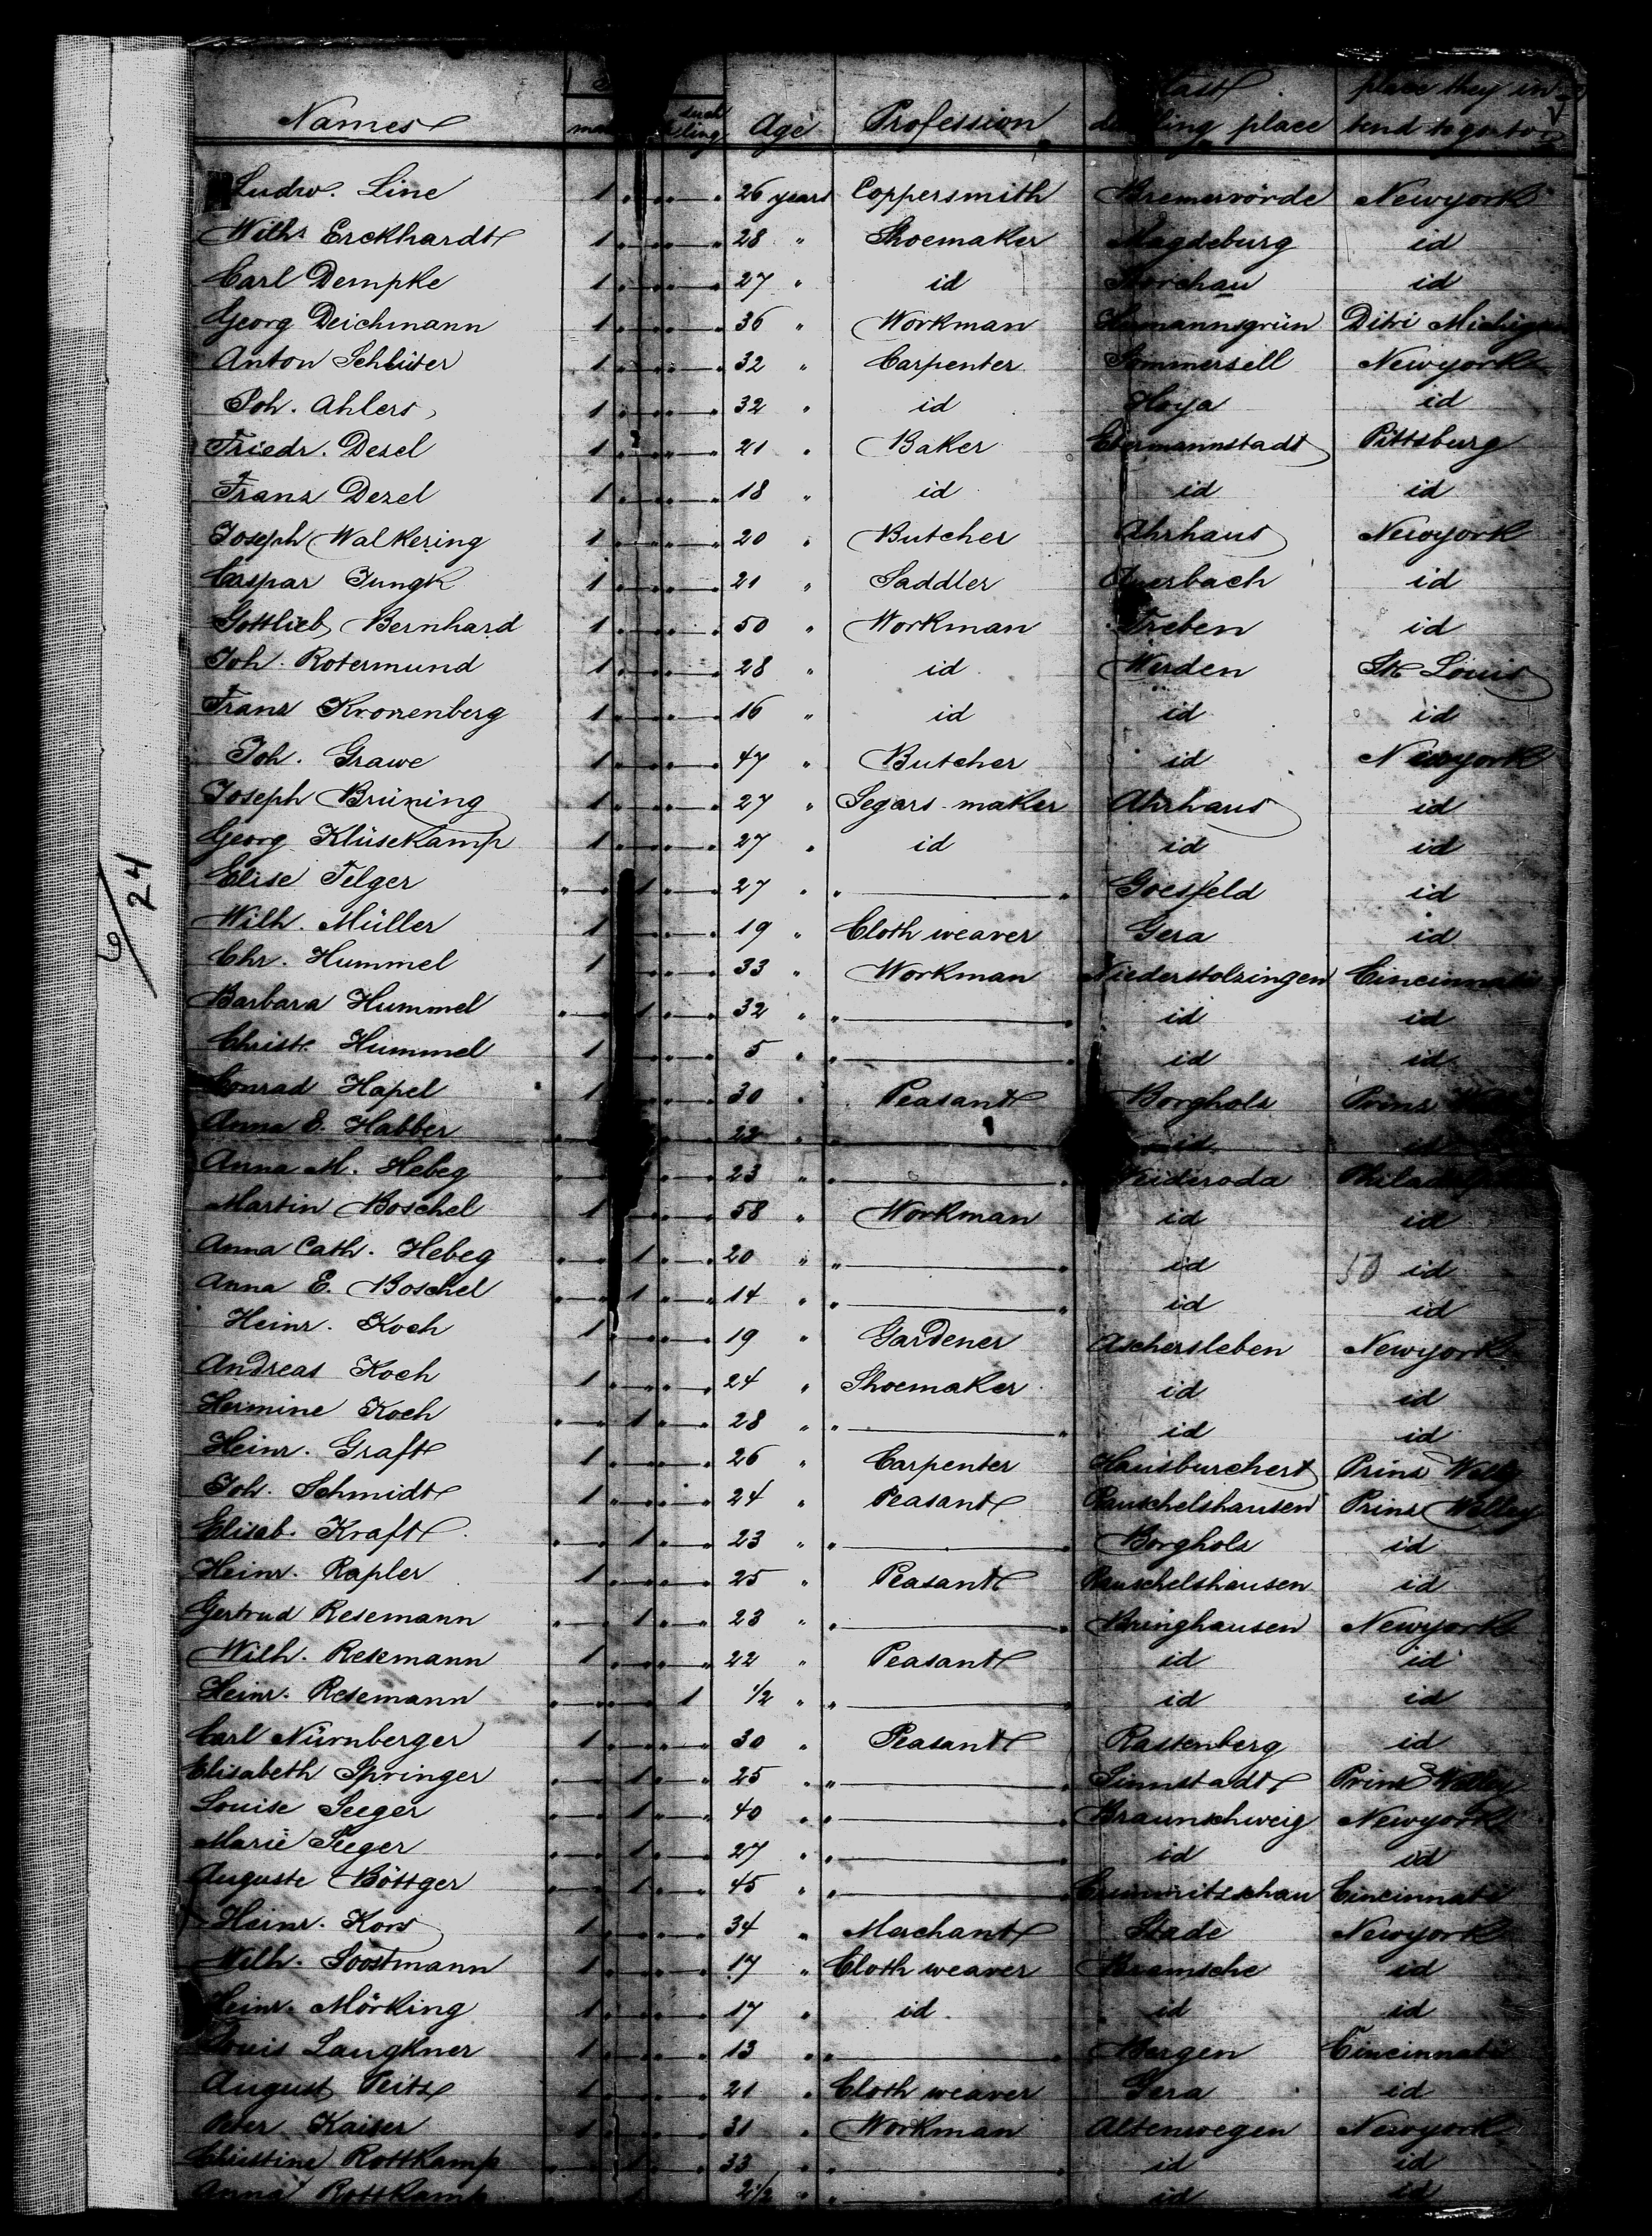 Names Age Profession last dwelling place place they intend to go to
Ludw. Line 1 26 years Coppersmith Bremervörde Newyork
Wilh. Erckhardt 1 28 " Shoemaker Magdeburg id
Carl Dempke 1 27 " id Storchau id
Georg Deichmann 1 36 " Workman Hermannsgrün Ditri Michigan
Anton Schlüter 1 32 " Carpenter Sommersell Newyork
Joh. Ahlers 1 32 " id Hoya id
Friedr. Dezel 1 21 " Baker Ebermannstadt Pittsburg
Franz Dezel 1 18 " id id id
Joseph Walkering 1 20 " Butcher Ahrhaus Newyork
Caspar Jungk 1 21 " Saddler Auerbach id
Gottlieb Bernhard 1 50 " Workman Treben id
Joh. Rotermund 1 28 " id Werden St. Louis
Franz Kronenberg 1 16 " id id id
Joh. Grawe 1 47 " Butcher id Newyork
Joseph Brüning 1 27 " Segars-maker Ahrhaus id
Georg Klüsekamp 1 27 " id id id
Elise Telger 1 27 " " Goesfeld id
Wilh. Müller 1 19 " Cloth weaver Gera id
Chr. Hummel 1 33 " Workman Niederstolzingen Cincinnati
Barbara Hummel 1 32 " " id id
Christ. Hummel 1 5 " " id id
Conrad Hapel 1 30 " Peasant Borgholz Prinz
Anna E. Habber 22 " " id id
Anna M. Hebeg 23 " " Weideroda Philadelphia
Martin Boschel 1 58 " Workman id id
Anna Cath. Hebeg 1 20 " " id 50 id
Anna E. Boschel 1 14 " " id id
Heinr. Koch 1 19 " Gardener Aschersleben Newyork
Andreas Koch 1 24 " Shoemaker id id
Hermine Koch 1 28 " " id id
Heinr. Graft 1 26 " Carpenter Hausburchert Prinz Walley
Joh. Schmidt 1 24 " Peasant Rauschelshausen Prinz Walley
Elisab. Kraft 1 23 " " Borgholz id
Heinr. Rapler 1 25 " Peasant Rauschelshausen id
Gertrud Resemann 1 23 " " Bringhausen Newyork
Wilh. Resemann 1 22 " Peasant id id
Heinr. Resemann 1 1/2 " " id id
Carl Nürnberger 1 30 " Peasant Rastenberg id
Elisabeth Springer 1 25 " " Sinnstadt Prinz Walley
Louise Seeger 1 40 " " Braunschweig Newyork
Marie Seeger 1 27 " " id id
Auguste Böttger 1 45 " " Crimmitzschau Cincinnati
Heinr. Kors 1 34 " Merchant Stade Newyork
Wilh. Soostmann 1 17 " Cloth weaver Bramsche id
Heinr. Mörking 1 17 " id id id
Louis Laugkner 1 13 " " Bergen Cincinnati
August Peitz 1 21 " Cloth weaver Gera id
Peter Kaiser 1 31 " Workman Altenwegen Newyork
Christine Rottkamp 1 33 " " id id
Anna Rottkamp 1 2 1/2 " " id id
6/24